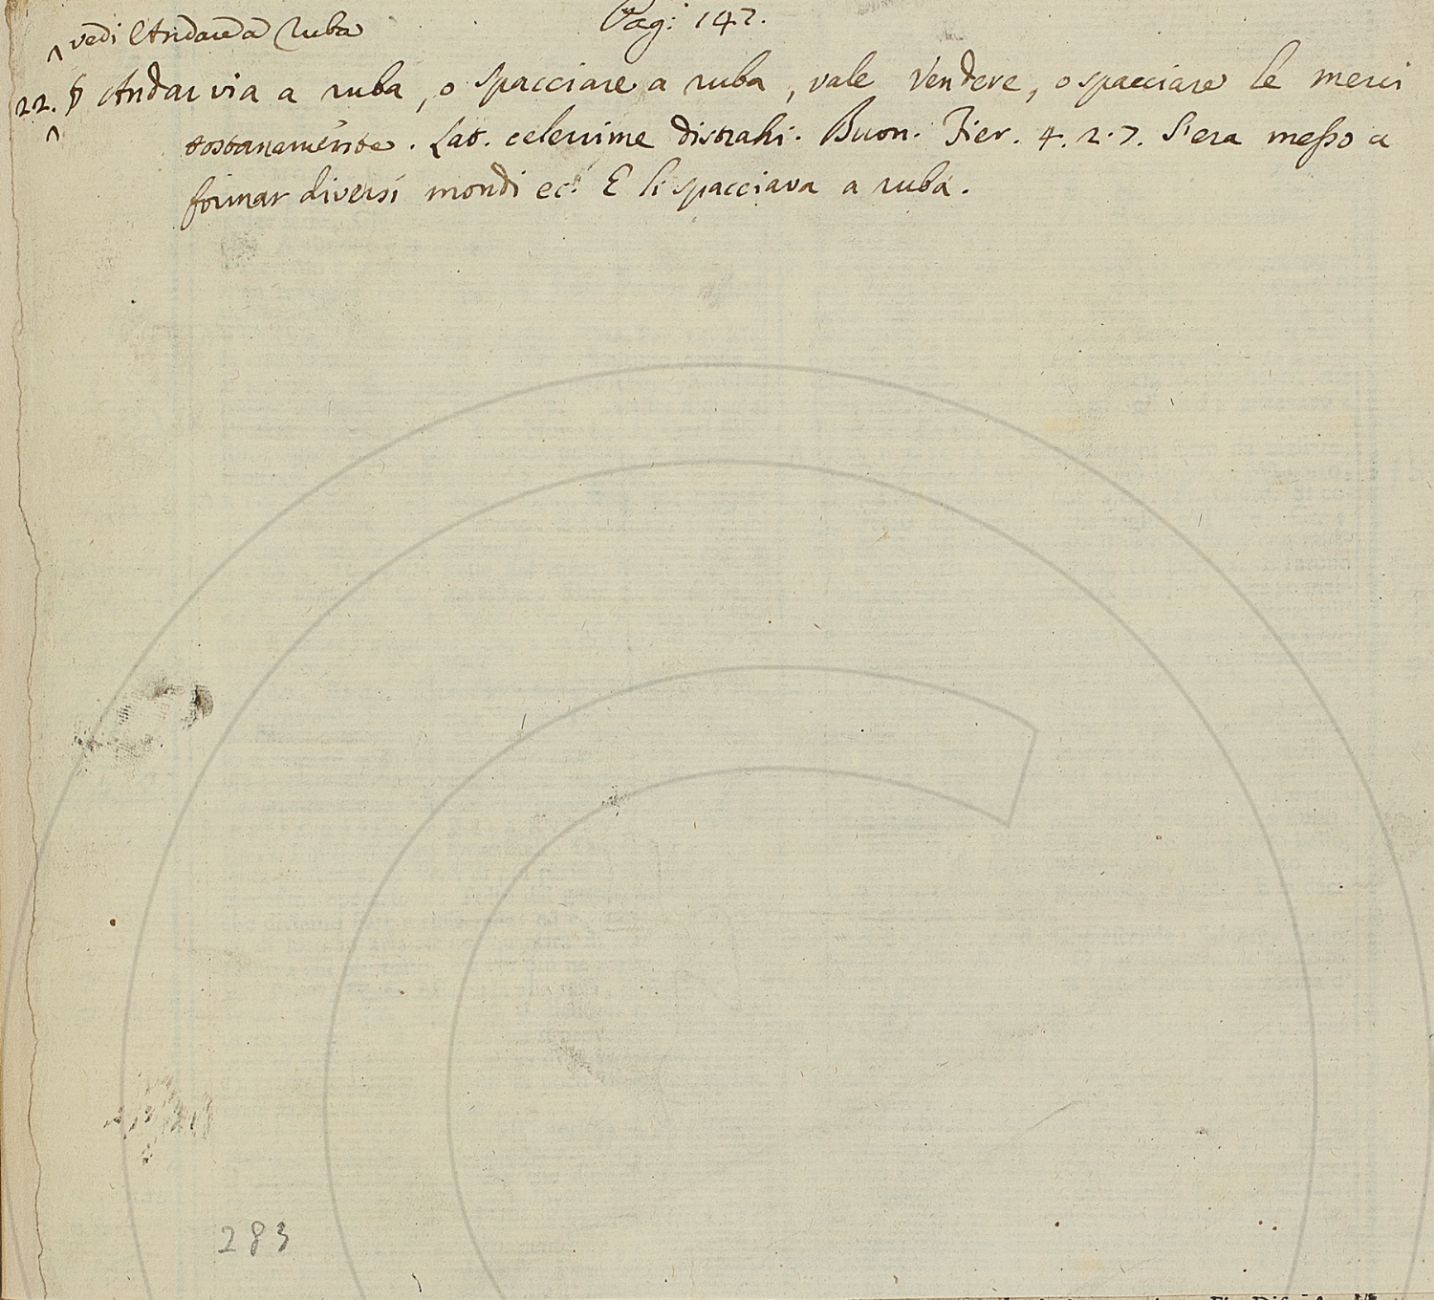 Pag: 147.
^ vedi Andare a ruba
22. § Andar via a ruba, o spacciare a ruba, vale Vendere, o spacciare le merci
^
tostanamente. Lat. celerrime distrahi. Buon. Fier. 4. 2. 7. S'era messo a
formar diversi mondi ec. E li spacciava a ruba.
283